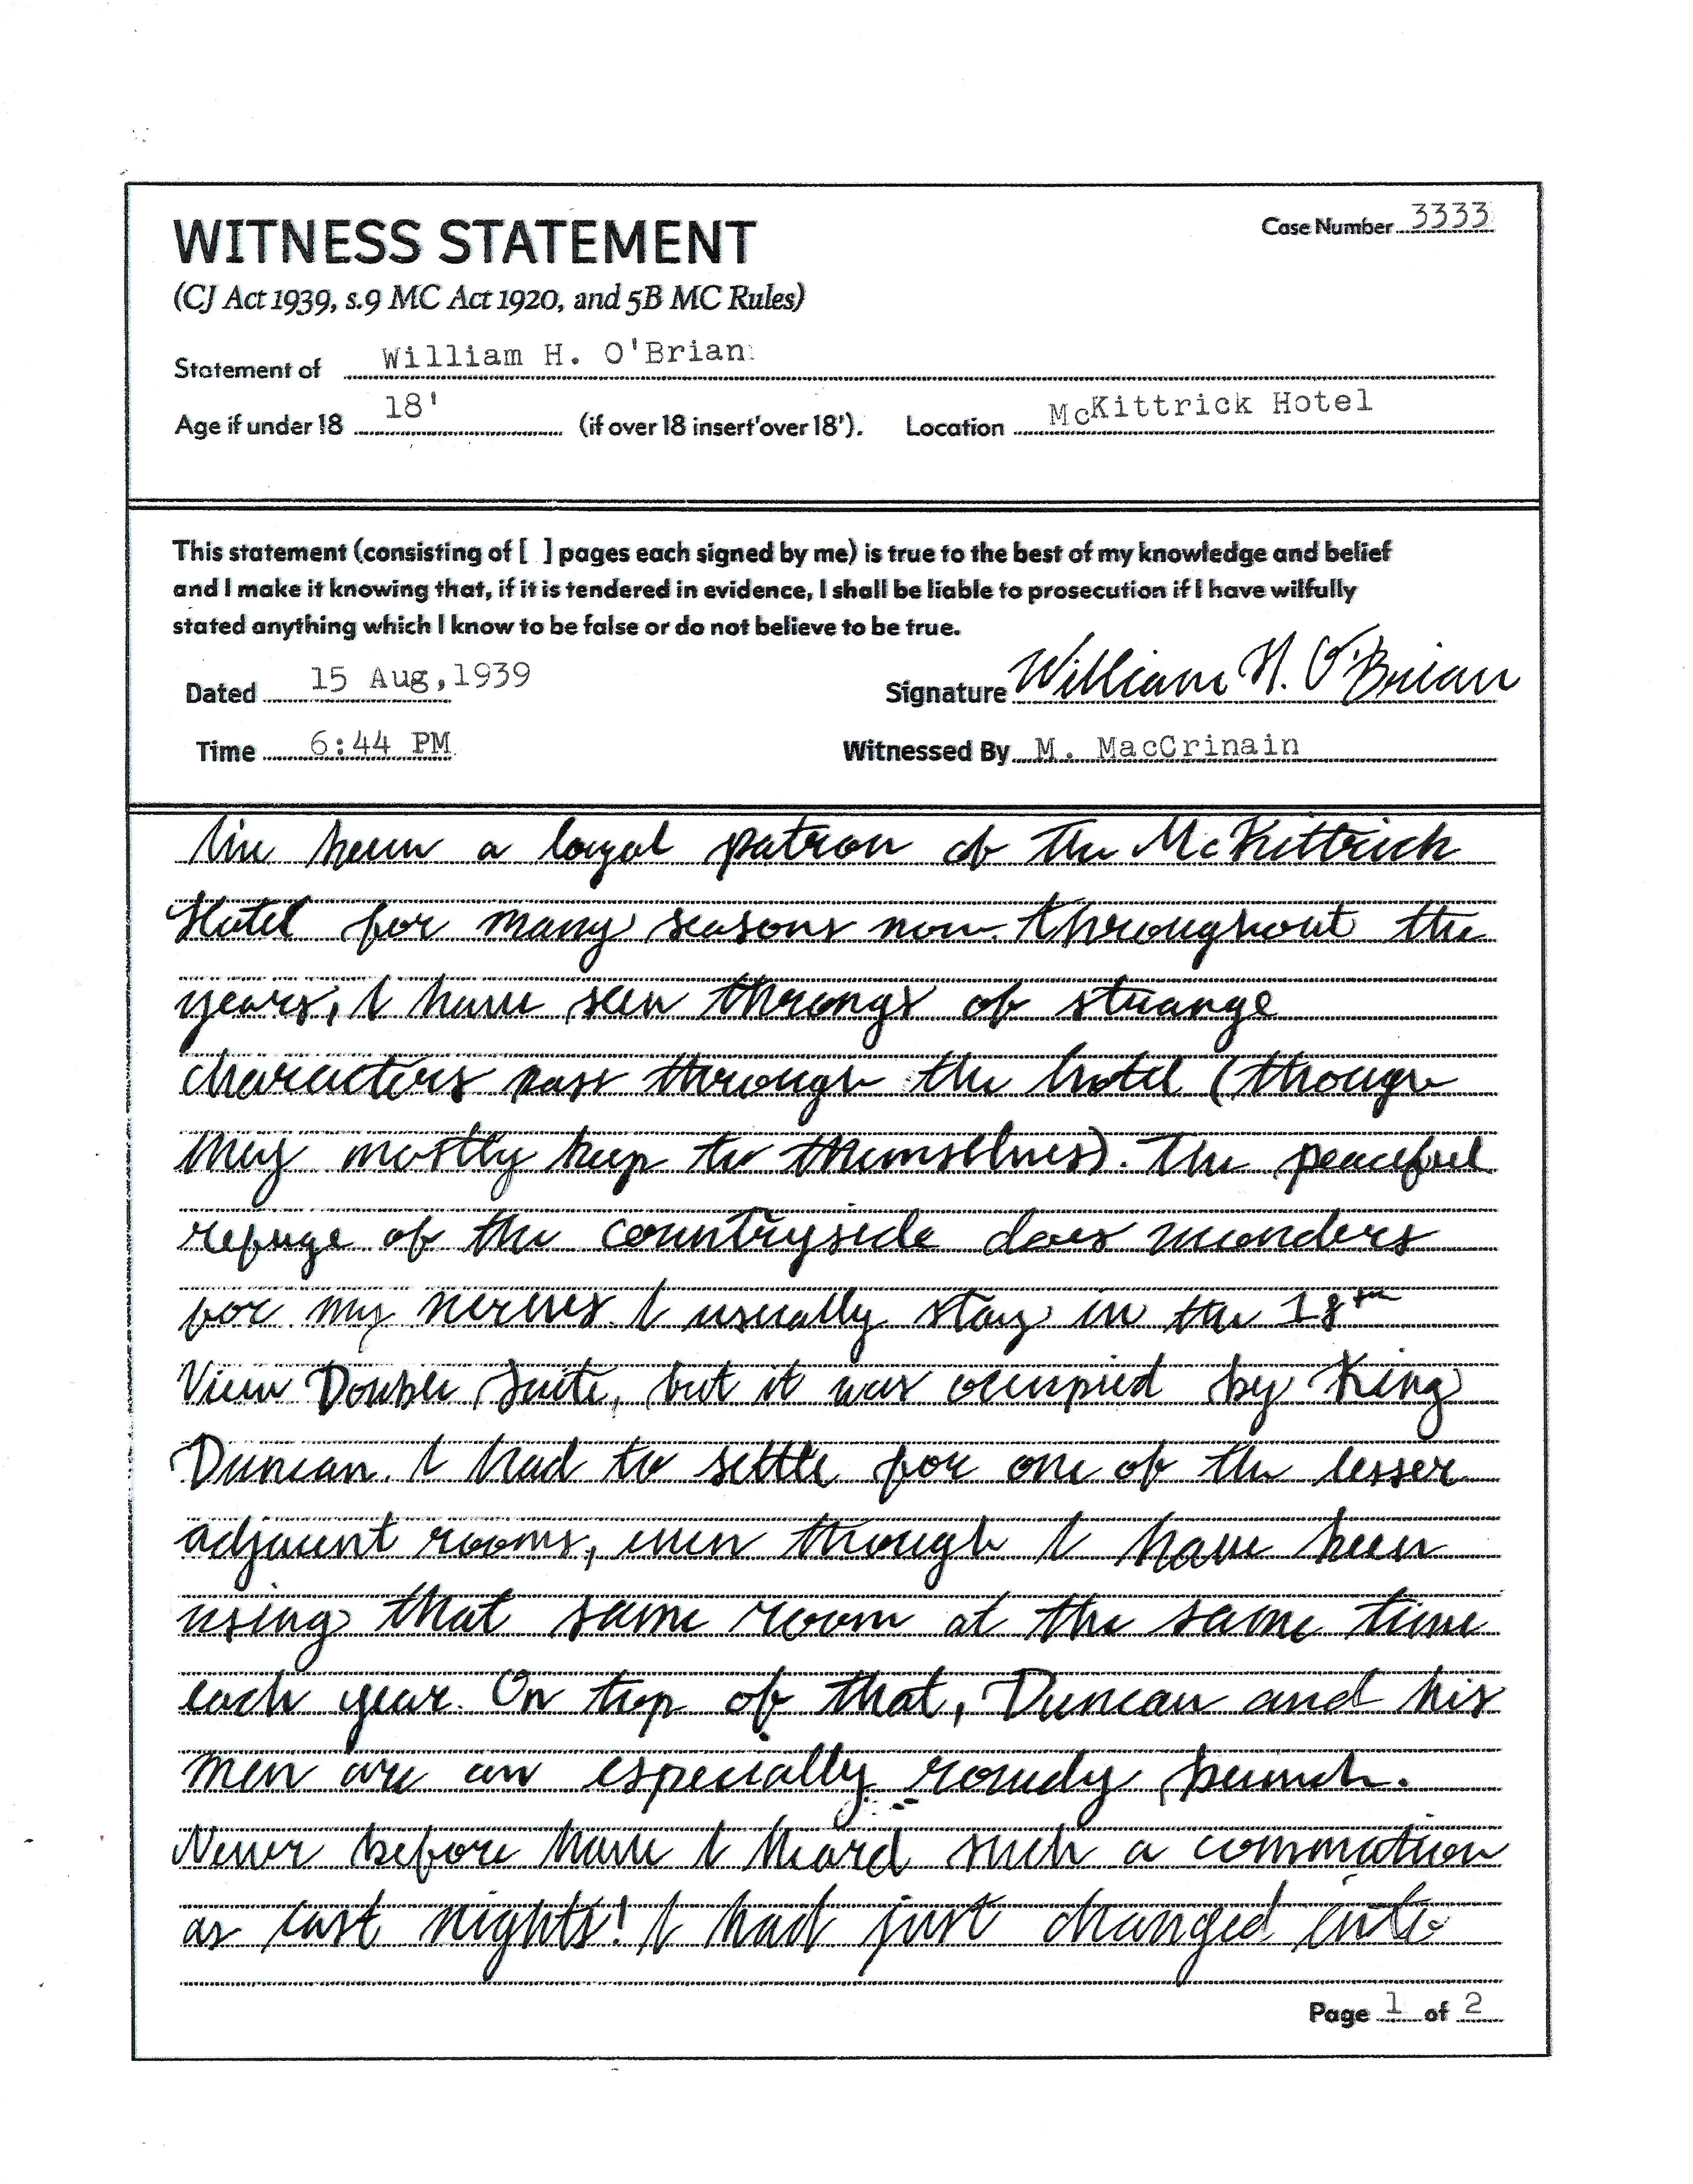 WITNESS STATEMENT
Case Number 3333
(CJ Act 1939, s.9 MC Act 1920, and 5B MC Rules)
Statement of William H. O'Brian
Age if under 18 18' (if over 18 insert'over 18'). Location McKittrick Hotel
This statement (consisting of [ ] pages each signed by me) is true to the best of my knowledge and belief
and I make it knowing that, if it is tendered in evidence, I shall be liable to prosecution if I have wilfully
stated anything which I know to be false or do not believe to be true.
Dated 15 Aug,1939 Signature William H. O'Brian
Time 6:44 PM Witnessed By M. MacCrinain
I've been a loyal patron of the McKittrick
Hotel for many seasons now. Throughout the
years, I have seen throngs of strange
characters pass through the hotel (though
they mostly keep to themselves). The peaceful
refuge of the countryside does wonders
for my nerves. I usually stay in the 18th
View Double Suite, but it was occupied by King
Duncan. I had to settle for one of the lesser
adjacent rooms, even though I have been
using that same room at the same time
each year. On top of that, Duncan and his
men are an especially rowdy bunch.
Never before have I heard such a commotion
as last nights! I had just changed into
Page 1 of 2